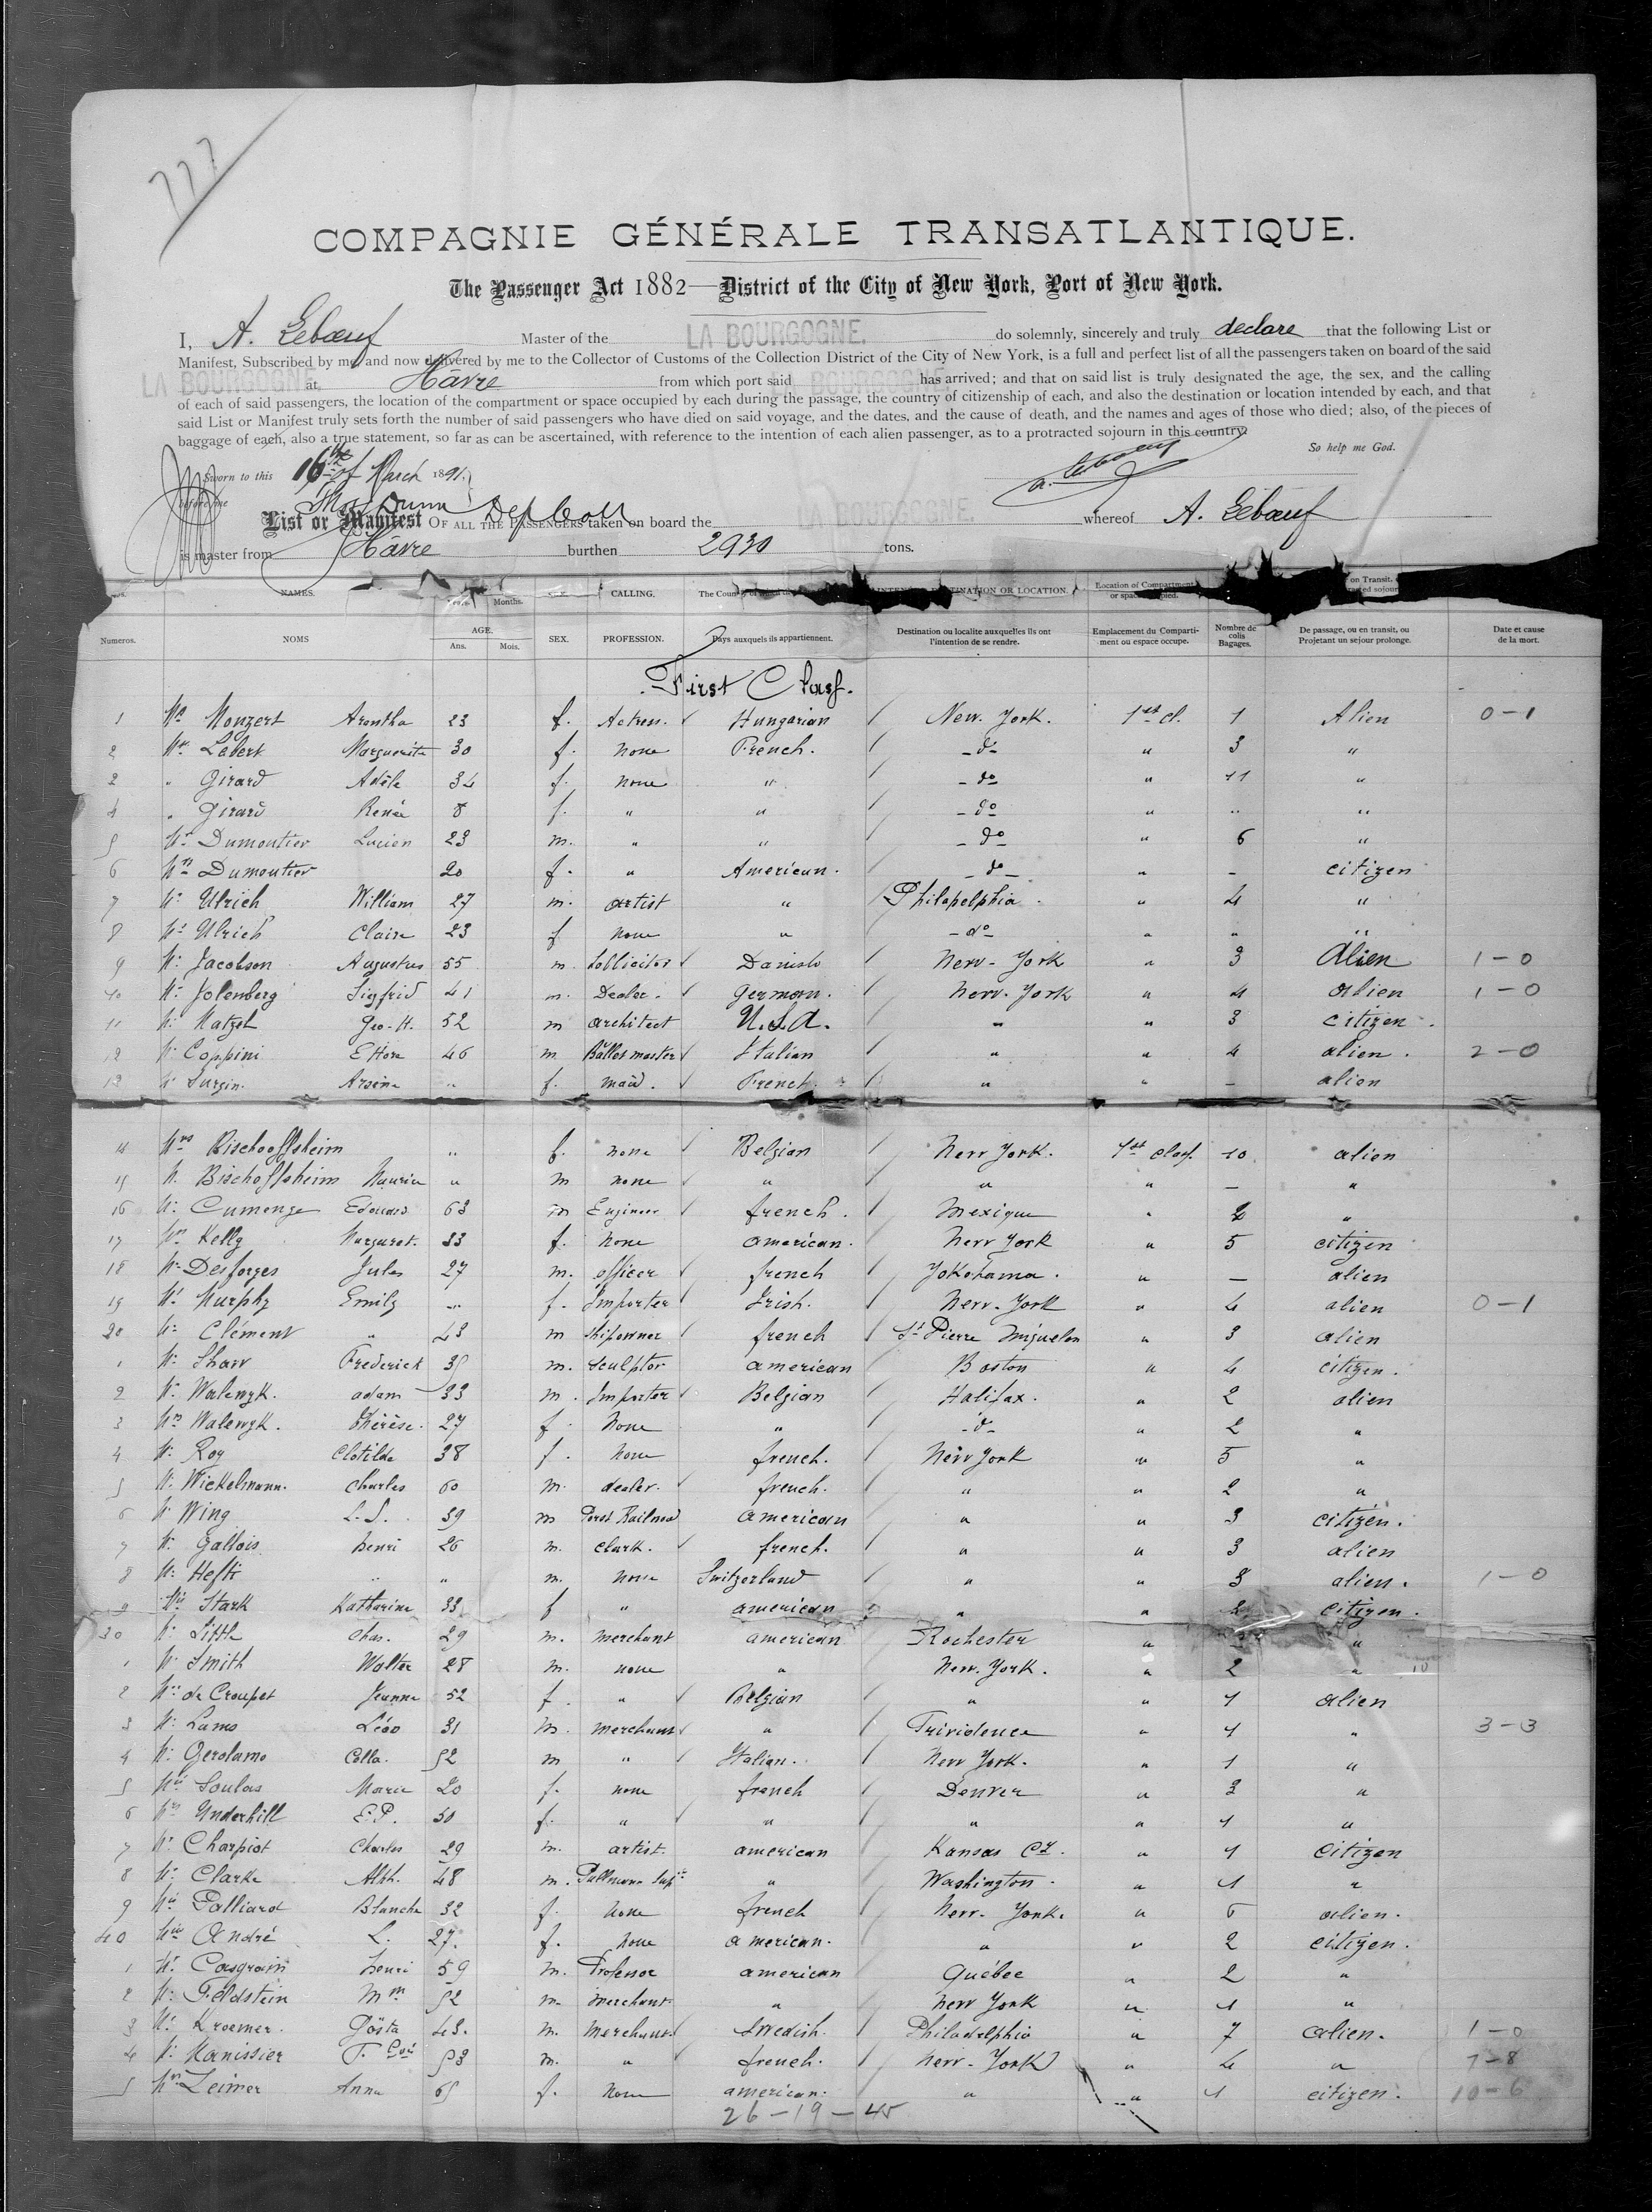 777
COMPAGNIE GÉNÉRALE TRANSATLANTIQUE.
The Passenger Act 1882—District of the City of New York, Port of New York.
I, A. Lebœuf Master of the LA BOURGOGNE. do solemnly, sincerely and truly declare that the following List or
Manifest, Subscribed by me and now delivered by me to the Collector of Customs of the Collection District of the City of New York, is a full and perfect list of all the passengers taken on board of the said
LA BOURGOGNE at Hâvre from which port said LA BOURGOGNE has arrived; and that on said list is truly designated the age, the sex, and the calling
of each of said passengers, the location of the compartment or space occupied by each during the passage, the country of citizenship of each, and also the destination or location intended by each, and that
said List or Manifest truly sets forth the number of said passengers who have died on said voyage, and the dates, and the cause of death, and the names and ages of those who died; also, of the pieces of
baggage of each, also a true statement, so far as can be ascertained, with reference to the intention of each alien passenger, as to a protracted sojourn in this country.
So help me God.
Sworn to this 16th of March 1891.
before me Thos Dunn Dep Coll
A. Lebœuf
List or Manifest OF ALL THE PASSENGERS taken on board the BOURGOGNE whereof A. Lebœuf
is master from Hâvre burthen 2930 tons.
NAMES. Months. CALLING. The Coun INATION OR LOCATION. Location of Compartment or space on Transit,
Numeros. NOMS AGE. Ans. Mois. SEX. PROFESSION. Pays auxquels ils appartiennent. Destination ou localite auxquelles ils ont l'intention de se rendre. Emplacement du Compartiment ou espace occupe. Nombre de colis Bagages. De passage, ou en transit, ou Projetant un sejour prolonge. Date et cause de la mort.
First Class.
1 Monzert Arantha 23 f. Actress. Hungarian New. York. 1st cl. 1 Alien 0-1
2 Labert Marguerite 30 f. none French. -do- " 3 "
3 " Girard Adèle 34 f. none " -do- " 11 "
4 " Girard Renée 8 f. " " -do- " " "
5 Mr Dumoutier Lucien 23 m. " " -do- " 6 "
6 Mrs Dumoutier 20 f. " American. -do- " - citizen
7 Mr Ulrich William 27 m. artist " Philadelphia. " 4 "
8 Ulrich Claire 23 f none " -do- " " "
9 Mr Jacobson Augustus 55 m. Sollicitor Danish New-York " 3 Alien 1-0
10 Mr Jolenberg Sigfrid 41 m. Dealer. german. New-York " 4 alien 1-0
11 Mr Matzel Geo-H. 52 m architect U.S.A. " " 3 citizen.
12 Mr Coppini Ettore 46 m. Ballet master Italian " " 4 alien. 2-0
13 Surgin. Arsène " f. maid. French. " " - alien
14 Mrs Bischooffsheim " f. none Belgian New York. 1st class. 10 alien
15 M. Bischoffsheim Maurice " m none " " " - "
16 Mr Cumenge Edouard 63 m Engineer french. Mexique " 2 "
17 Kelly Margaret. 33 f. None american. New York " 5 citizen
18 Mr Desforges Jules 27 m. officer french Yokohama. " - alien
19 Murphy Emily " f. Importer Irish. New-York " 4 alien 0-1
20 Mr Clément " 43 m shipowner french St Pierre Miquelon " 3 alien
1 Mr Shaw Frederick 35 m. sculptor american Boston " 4 citizen.
2 Mr Walenyk. adam 33 m. Importer Belgian Halifax. " 2 alien
3 Mrs Walenyk. Thérèse. 27 f. None " -do- " 2 "
4 Roy Clotilde 38 f. None french. New York " 5 "
5 Mr Wickelmann. charles 60 m. dealer. french. " " 2 "
6 Mr Wing L. S. 39 m Prest Railroad american " " 3 citizen.
7 Mr Gallois henri 26 m. clerk. french. " " 3 alien
8 Mr Hefti " " m. None Switzerland " " 3 alien. 1-0
9 Stark Katharine 33 f " american " " 2 citizen.
30 Mr Little Chas. 29 m. merchant american Rochester " "
1 Mr Smith Walter 28 m. none " New. York. " 2 " 10
2 de Croupet Jeanne 52 f. " Belgian " " 1 alien
3 Mr Lams Léoo 31 m. merchant " Prividence " 1 " 3-3
4 Mr Gerolamo Colla. 52 m " Italian. New York. " 1 "
5 Soulas Marie 20 f. none french Denver " 3 "
6 Mrs Underhill E.P. 50 f. " " " " 1 "
7 Mr Charpiot Charles 29 m. artist. american Kansas Cy. " 1 Citizen
8 Mr Clarke Alth. 48 m. Pullmann Supt " Washington. " 1 "
9 Palliard Blanche 32 f. None french New-York. " 6 alien.
40 André L. 27. f. None american. " " 2 citizen.
1 Mr Casgrain henri 59 m. Professor american Québec " 2 "
2 Mr Feldstein Mm 52 m. merchant " New York " 1 "
3 Mr Kroemer. Gösta 43. m. Merchant Swedish. Philadelphia " 7 alien. 1-0
4 Mr Manissier F. 53 m. " french. New-York " 4 " 7-8
5 Mrs Leimer Anna 65 f. None american. " " 1 citizen. 10-6
26-19-45